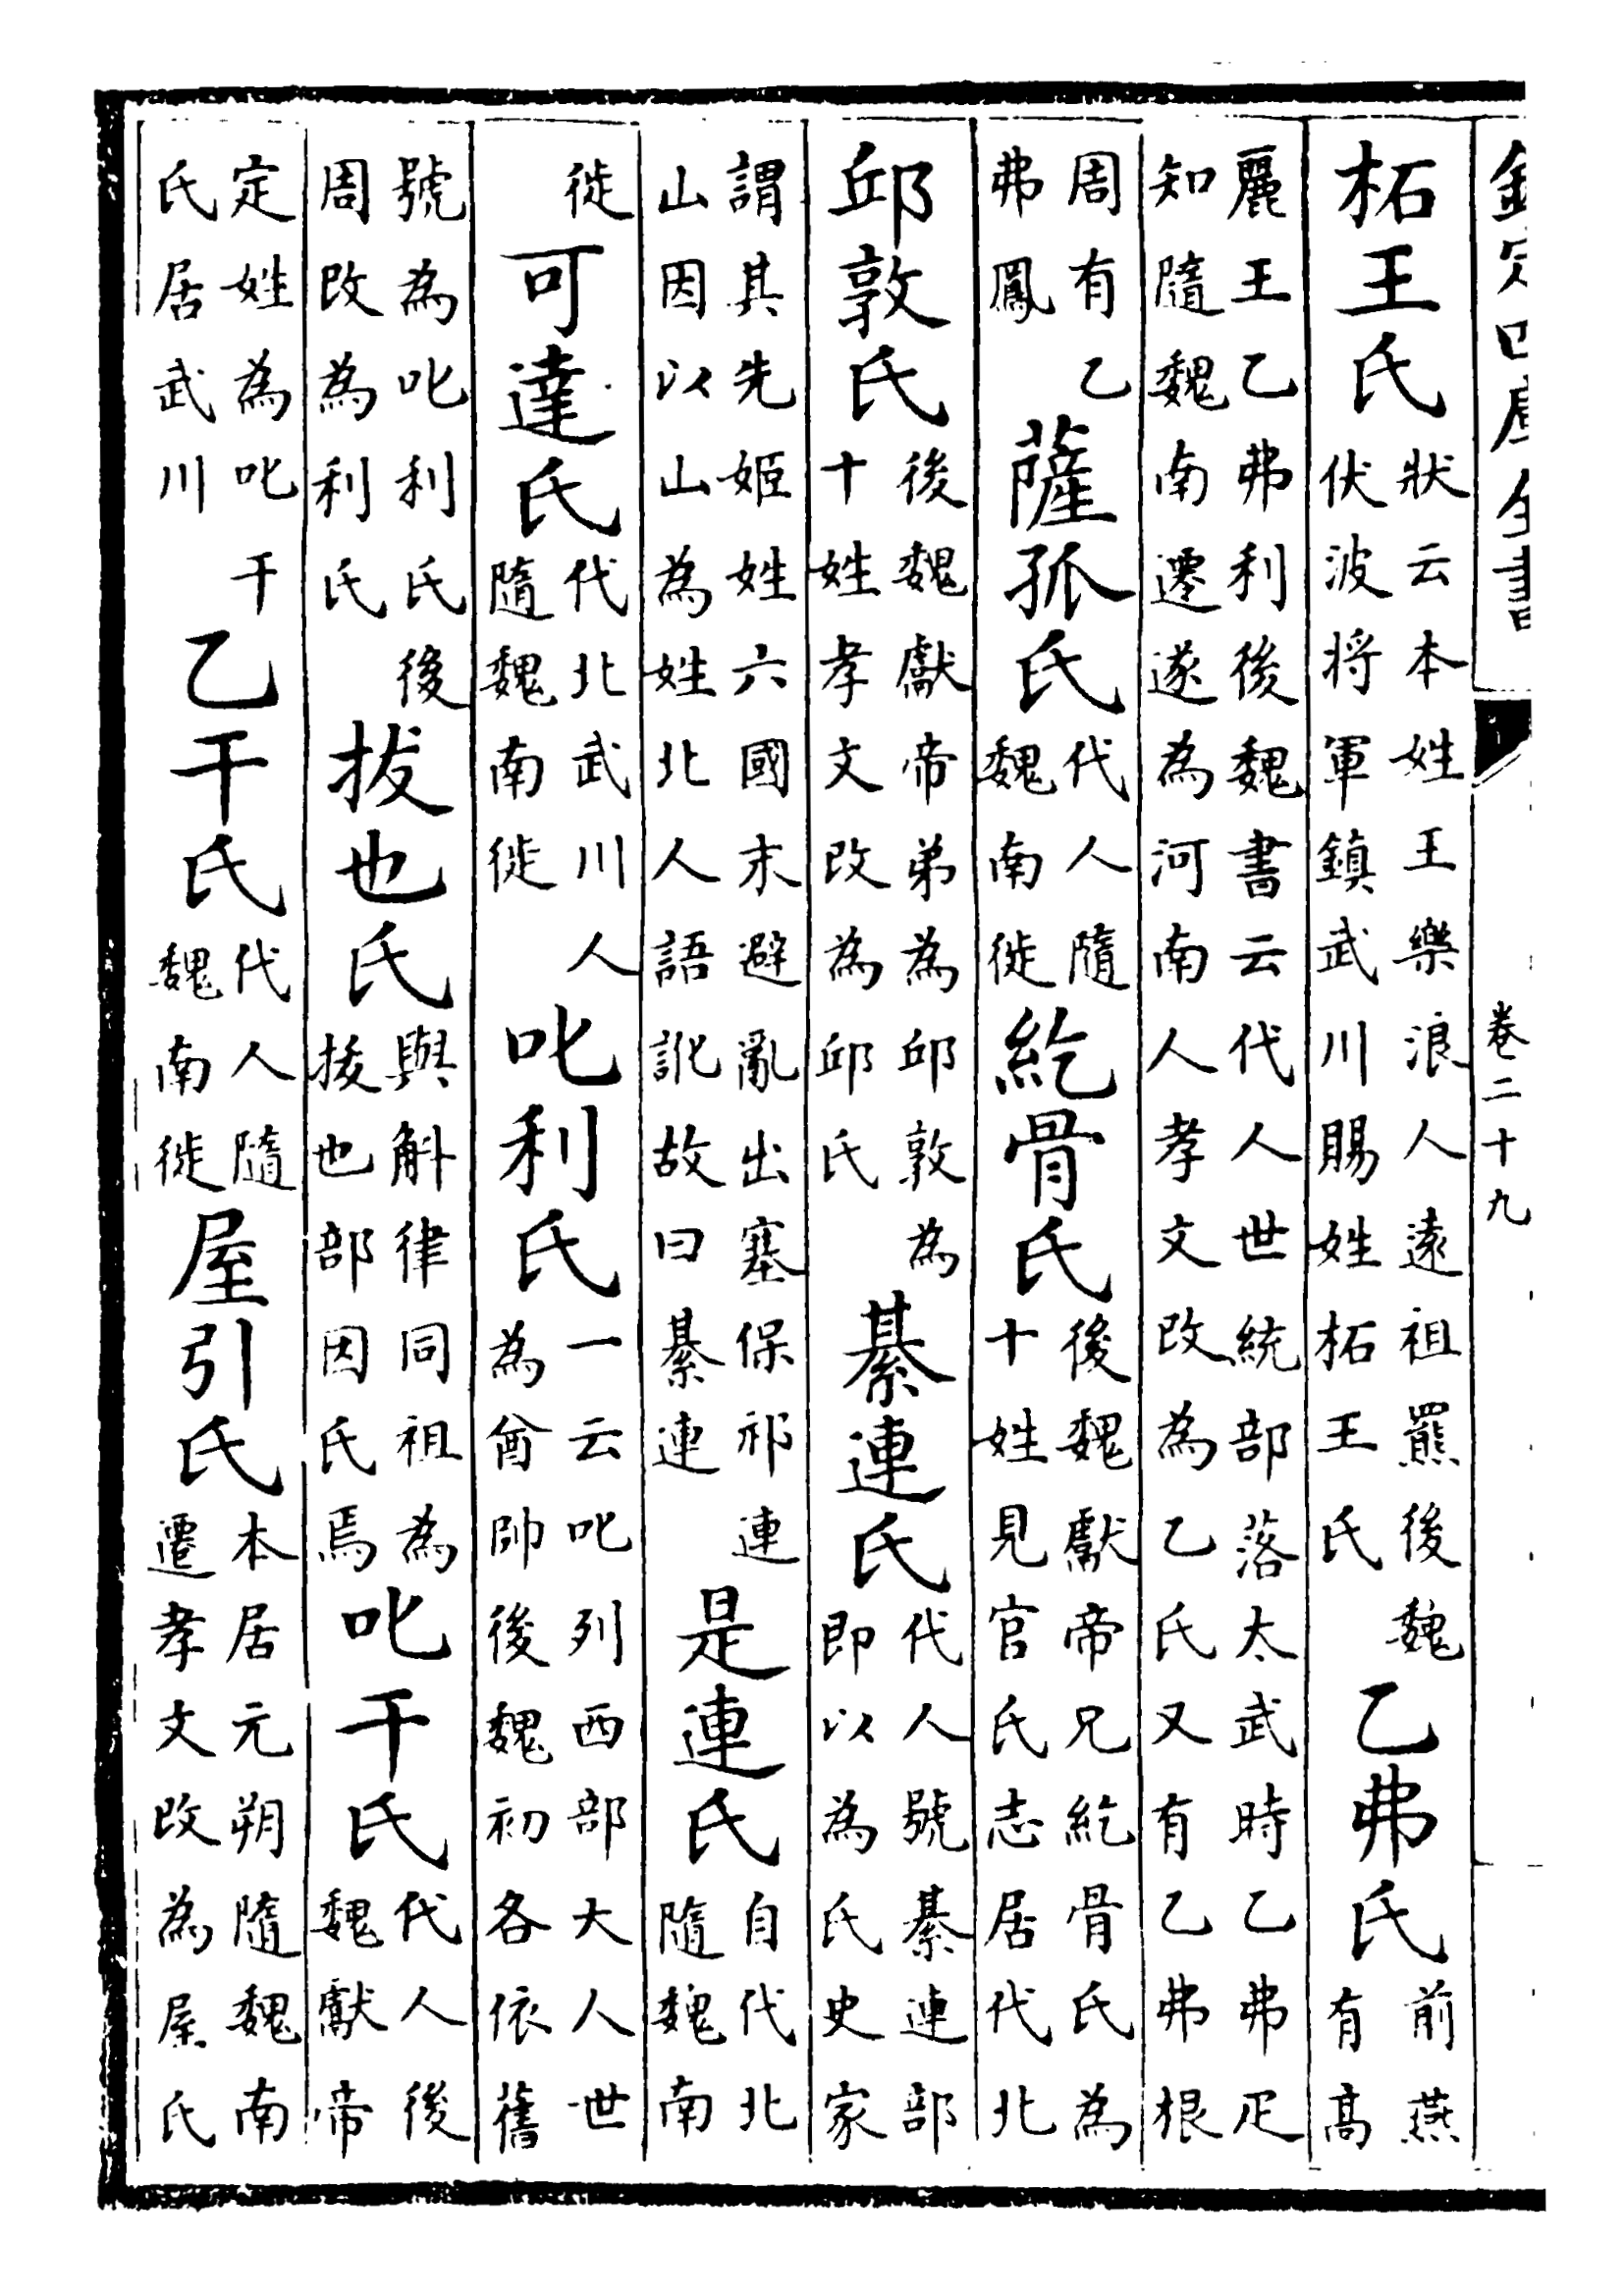 欽定四庫全書 卷二十九
柘王氏狀云本姓王樂浪人遠祖羆後魏伏波将軍鎮武川賜姓柘王氏乙弗氏前燕有高
麗王乙弗利後魏書云代人世統部落太武時乙弗疋知隨魏南遷遂為河南人孝文改為乙氏又有乙弗根
周有乙弗鳳薩孤氏代人隨魏南徙紇骨氏後魏獻帝兄紇骨氏為十姓見官氏志居代北
邱敦氏後魏獻帝弟為邱敦為十姓孝文改為邱氏綦連氏代人號綦連部即以為氏史家
謂其先姬姓六國末避亂出塞保祁連山因以山為姓北人語訛故曰綦連是連氏自代北隨魏南
徙可達氏代北武川人隨魏南徙叱利氏一云叱列西部大人世為酋帥後魏初各依舊
號為叱利氏後周改為利氏拔也氏與斛律同祖為拔也部因氏焉叱干氏代人後魏獻帝
定姓為叱干氏居武川乙干氏代人隨魏南徙屋引氏本居元朔隨魏南遷孝文改為屋氏